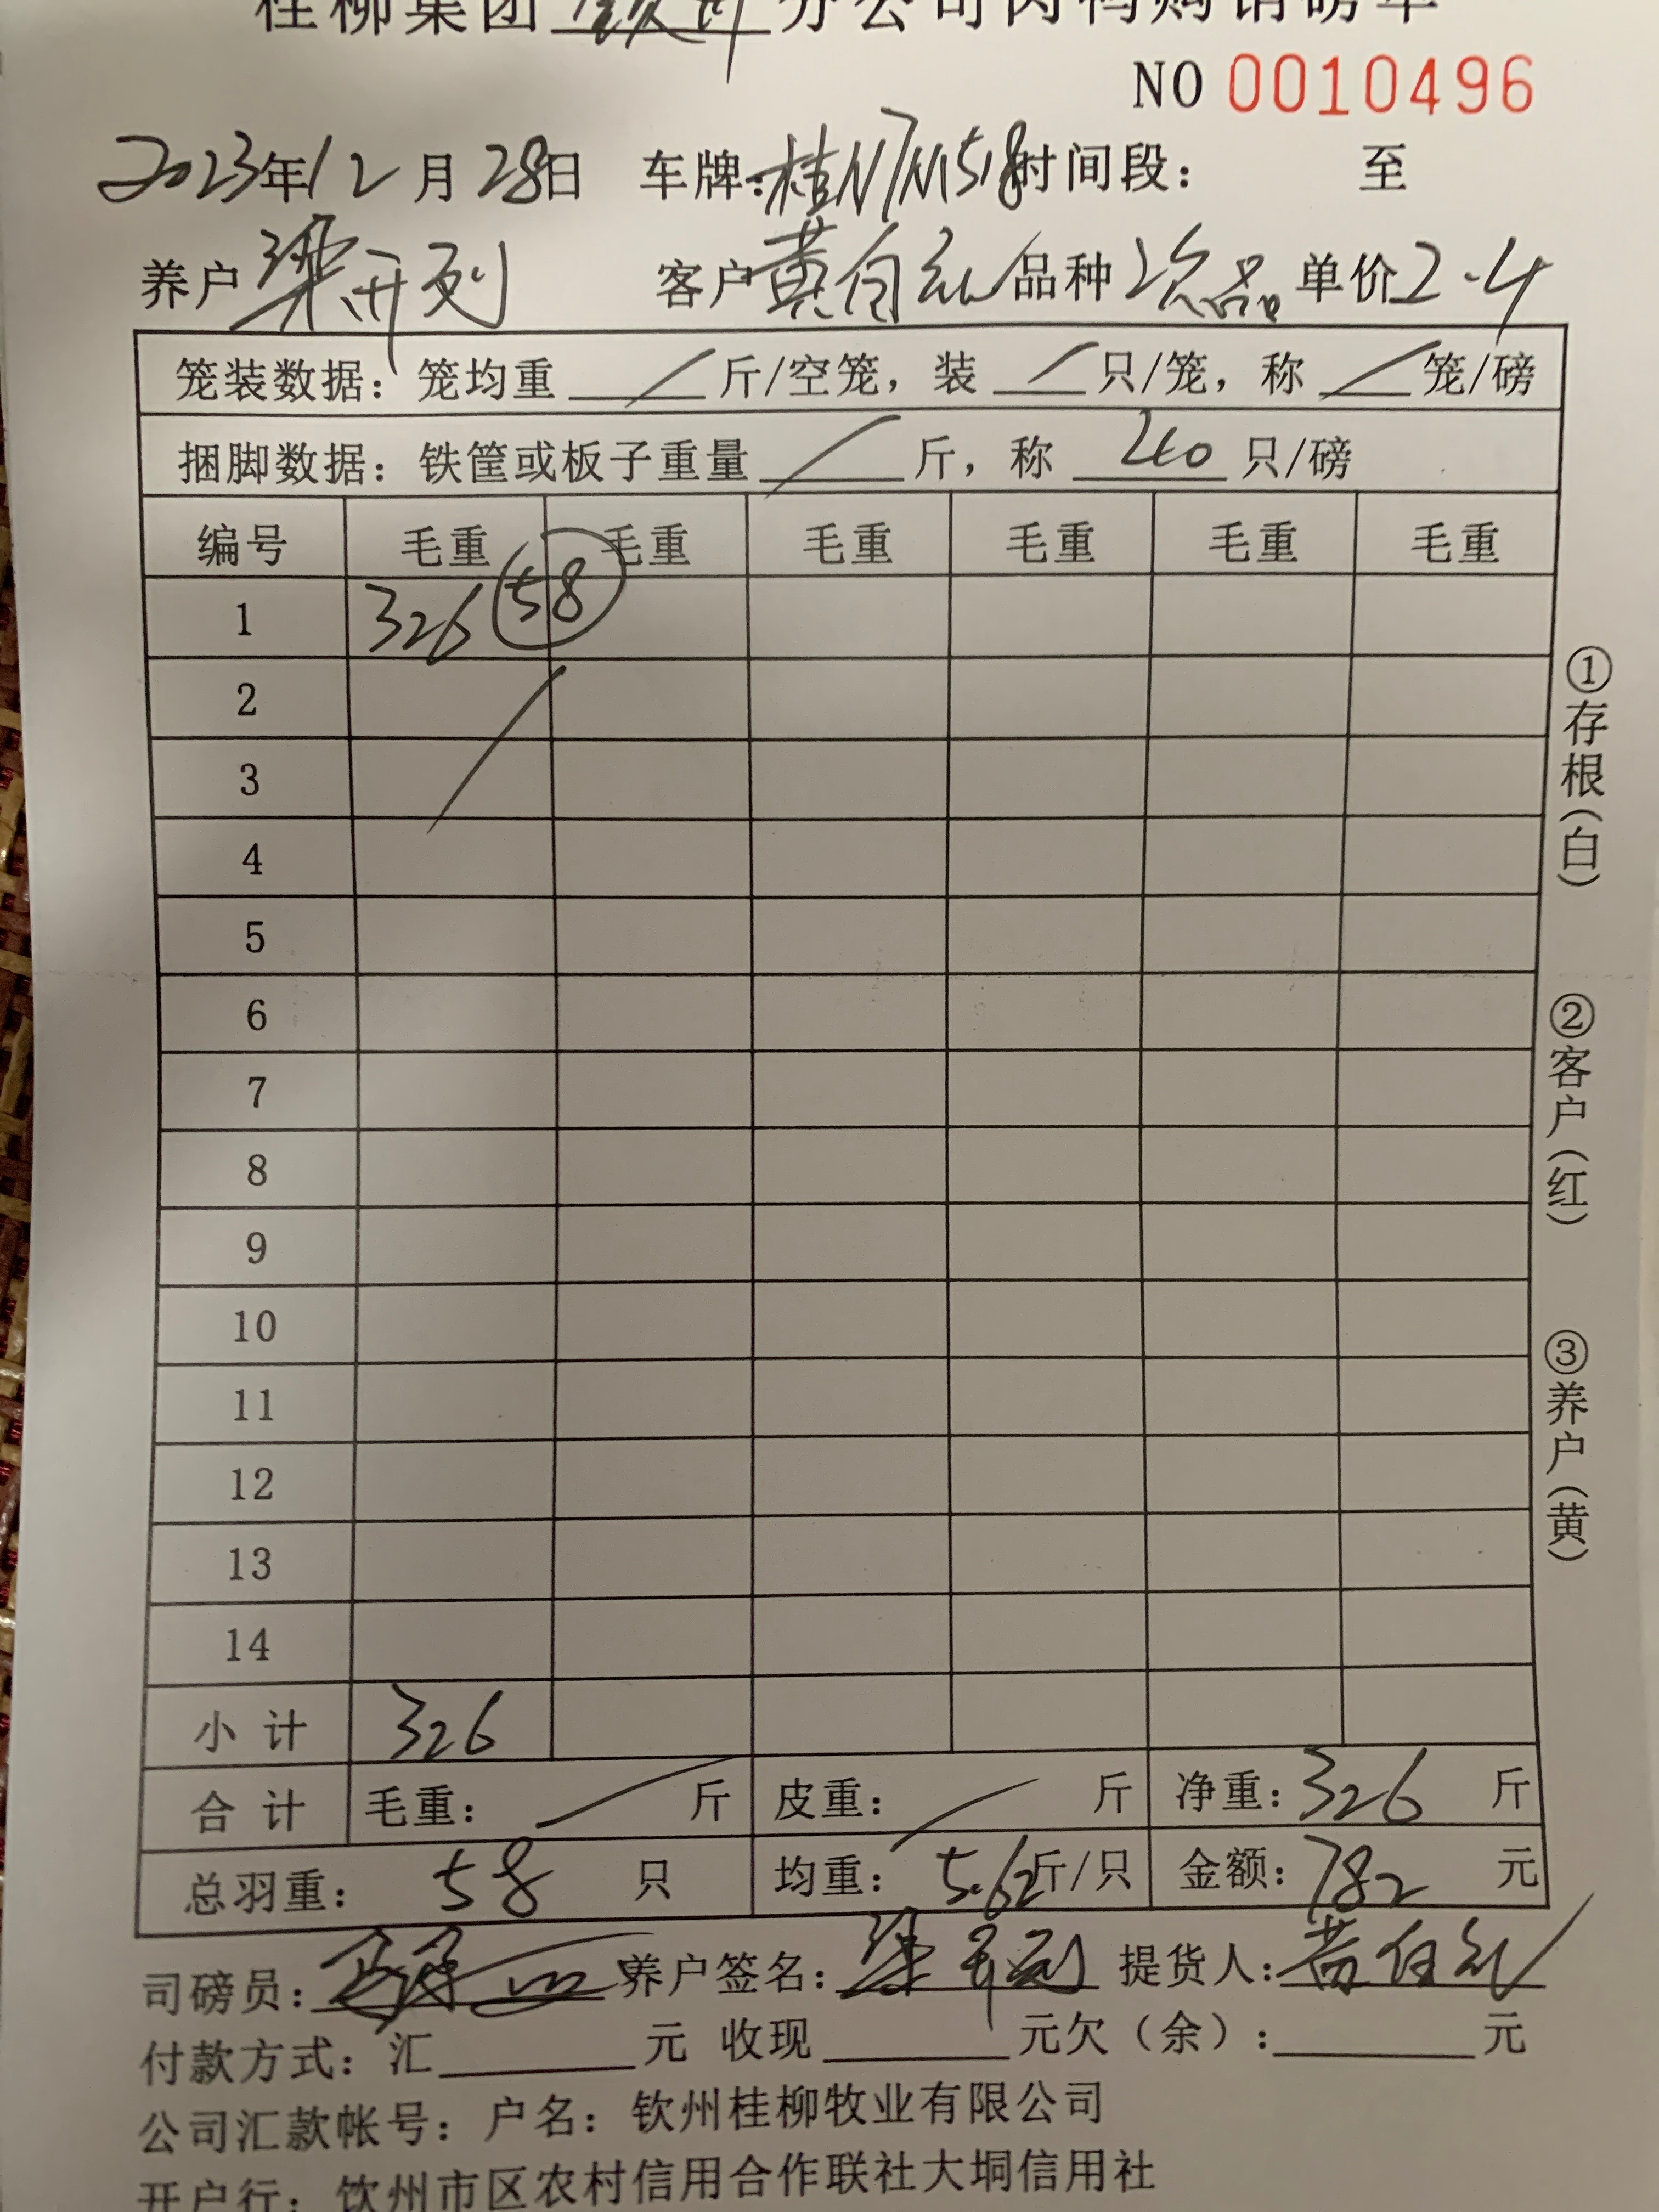 桂柳集团钦州分公司肉鸭购销磅单
NO 0010496
2023年12月28日 车牌:桂N7M518 时间段: 至
养户 梁开列 客户 黄自红 品种 次品 单价 2.4
笼装数据: 笼均重 / 斤/空笼, 装 / 只/笼, 称 / 笼/磅
捆脚数据: 铁筐或板子重量 / 斤, 称 40 只/磅
编号 毛重 毛重 毛重 毛重 毛重 毛重
1 326 58
2
3
4
5
6
7
8
9
10
11
12
13
14
小计 326
合计 毛重: / 斤 皮重: / 斤 净重: 326 斤
总羽重: 58 只 均重: 5.62 斤/只 金额: 782 元
司磅员: 养户签名: 梁开列 提货人: 黄自红
付款方式: 汇 元 收现 元欠(余): 元
公司汇款帐号: 户名: 钦州桂柳牧业有限公司
开户行: 钦州市区农村信用合作联社大垌信用社
①存根(白)
②客户(红)
③养户(黄)